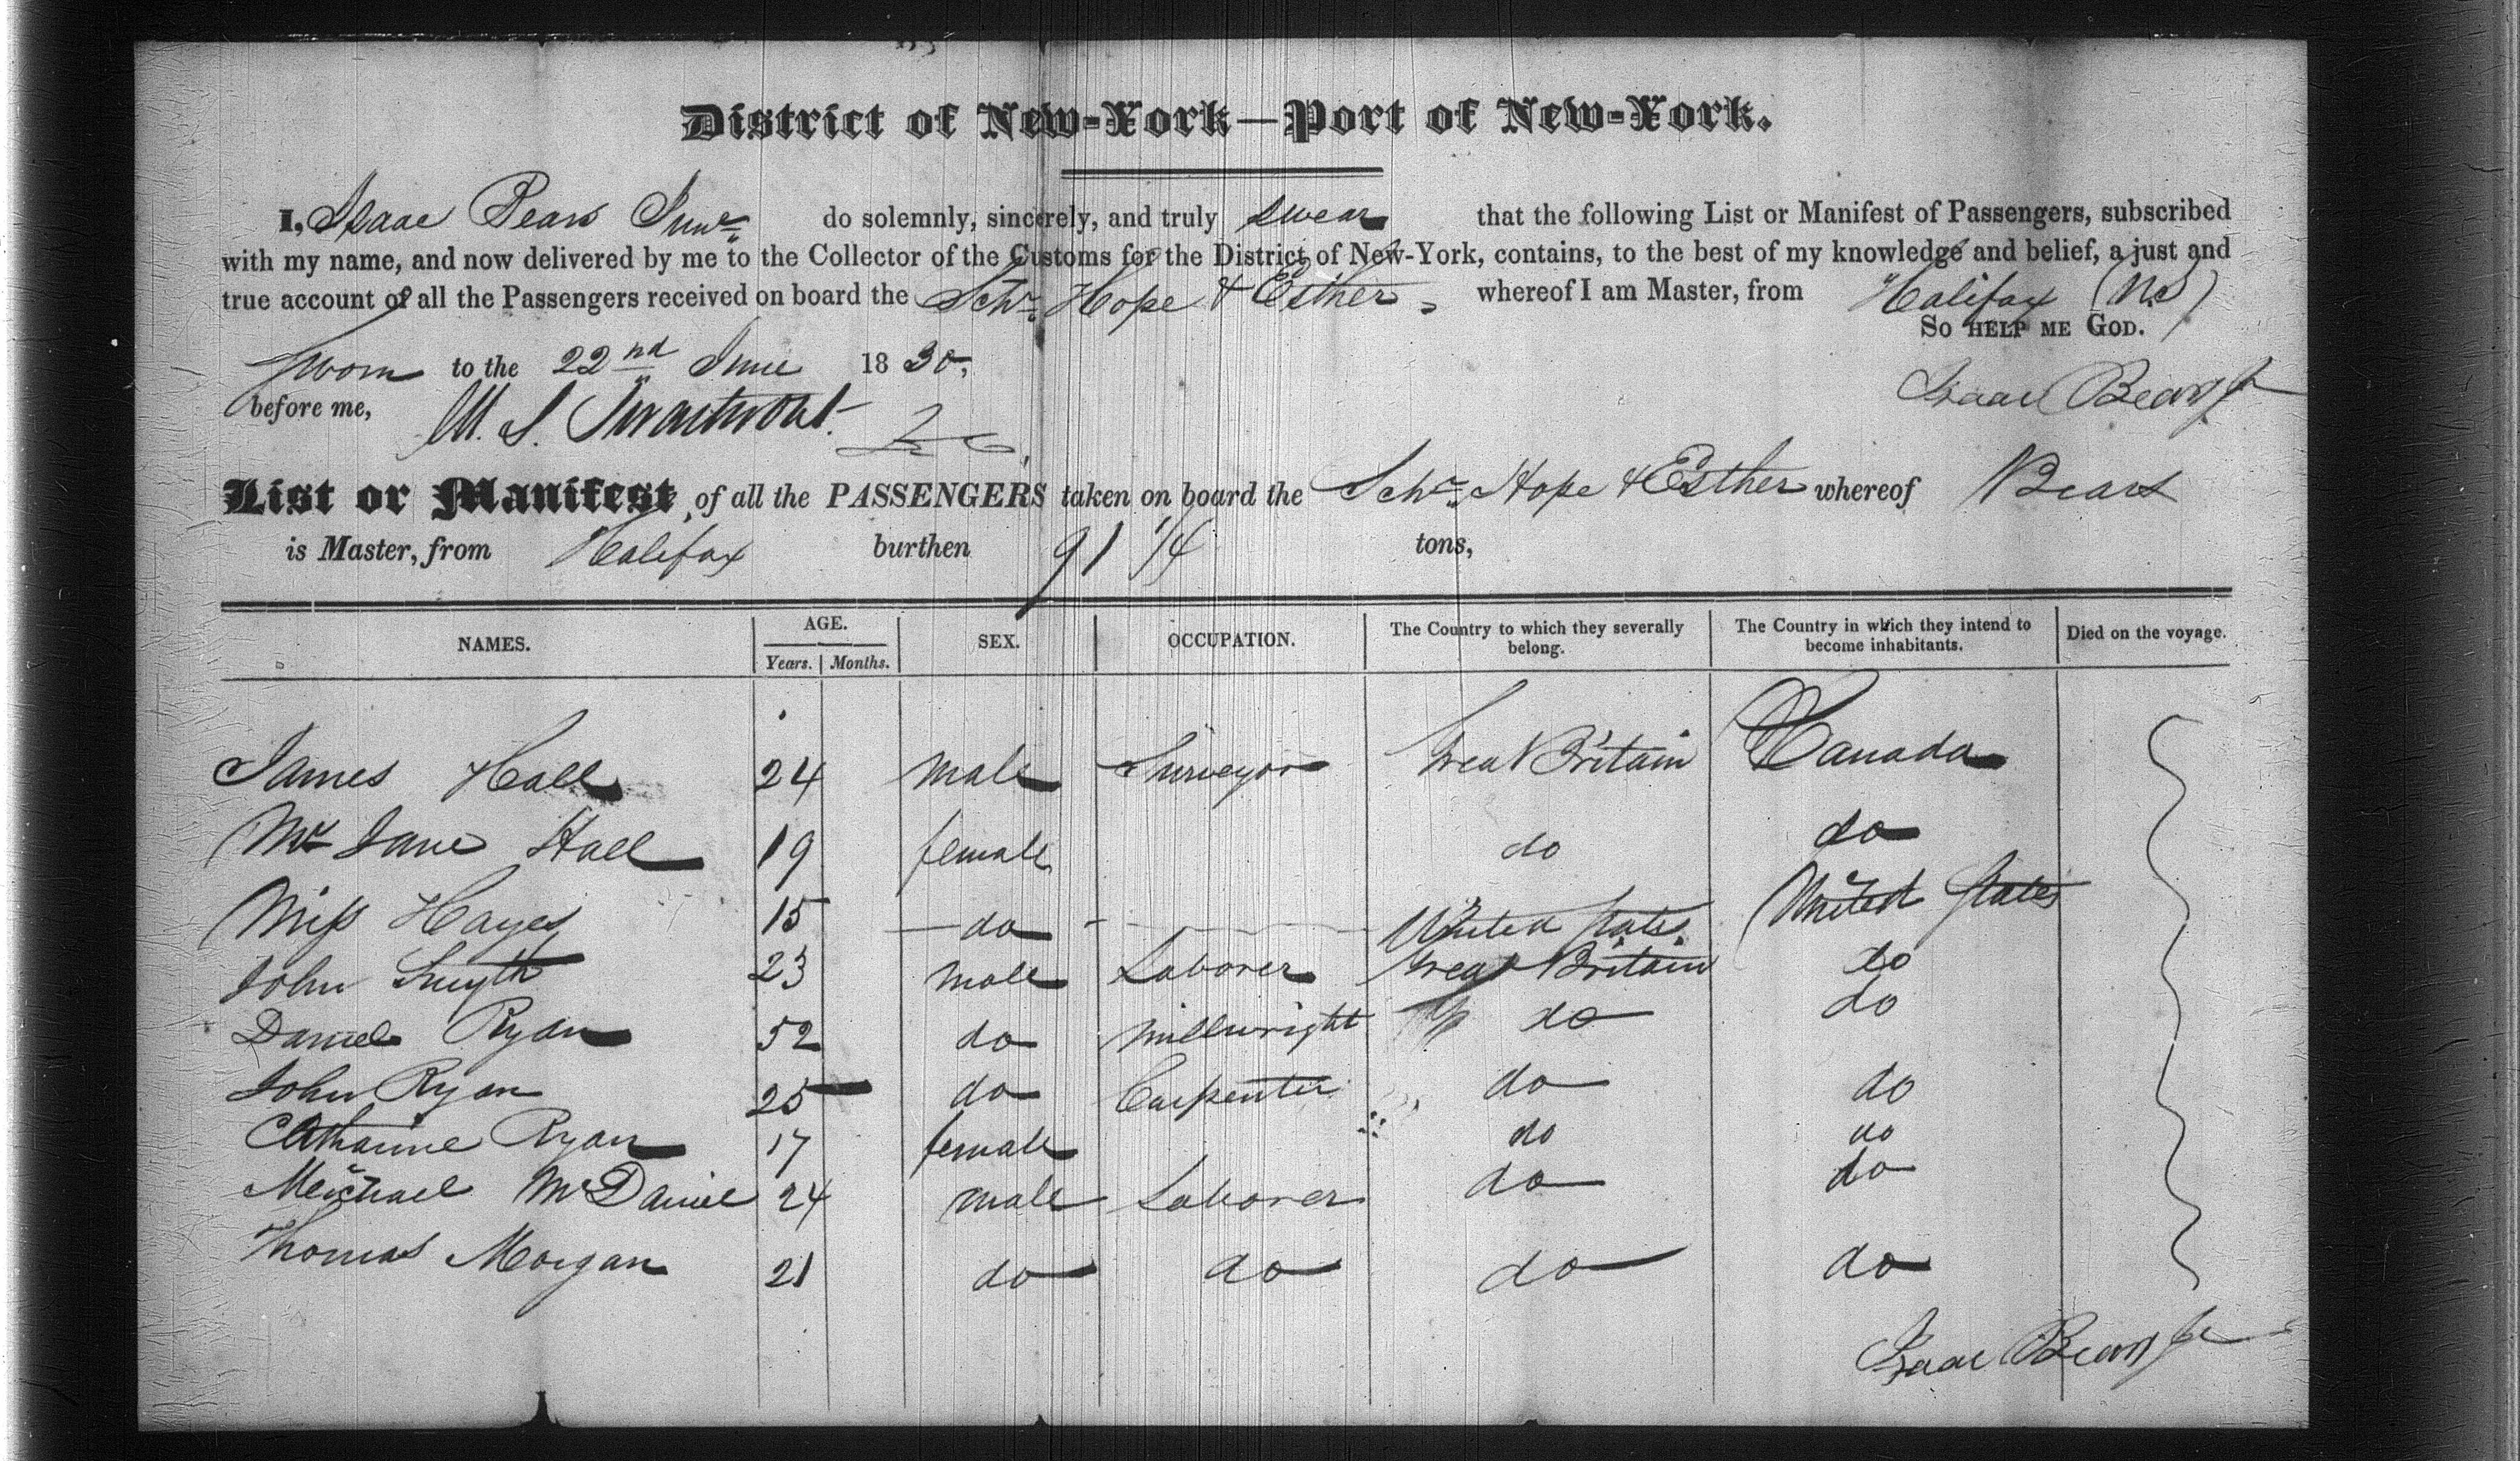 District of New-York—Port of New-York.
I, Isaac Bears Junr. do solemnly, sincerely, and truly swear that the following List or Manifest of Passengers, subscribed
with my name, and now delivered by me to the Collector of the Customs for the District of New-York, contains, to the best of my knowledge and belief, a just and
true account of all the Passengers received on board the Schr. Hope & Esther, whereof I am Master, from Halifax (NS)
So help me God.
Sworn to the 22nd June 1830,
before me, M. S. Swartwout Isaac Bears Jr
List or Manifest, of all the PASSENGERS taken on board the Schr. Hope & Esther whereof Bears
is Master, from Halifax burthen 91 1/4 tons,
NAMES. AGE. SEX. OCCUPATION. The Country to which they severally belong. The Country in which they intend to become inhabitants. Died on the voyage.
Years. Months.
James Hall 24 male Surveyor Great Britain Canada
Mrs Jane Hall 19 female do do
Miss Hayes 15 do United States United States
John Smyth 23 male Laborer Great Britain do
Daniel Ryan 52 do Millwright do do
John Ryan 25 do Carpenter do do
Catharine Ryan 17 female do do
Meichael McDaniel 24 male Laborer do do
Thomas Morgan 21 do do do do
Isaac Bears Jr